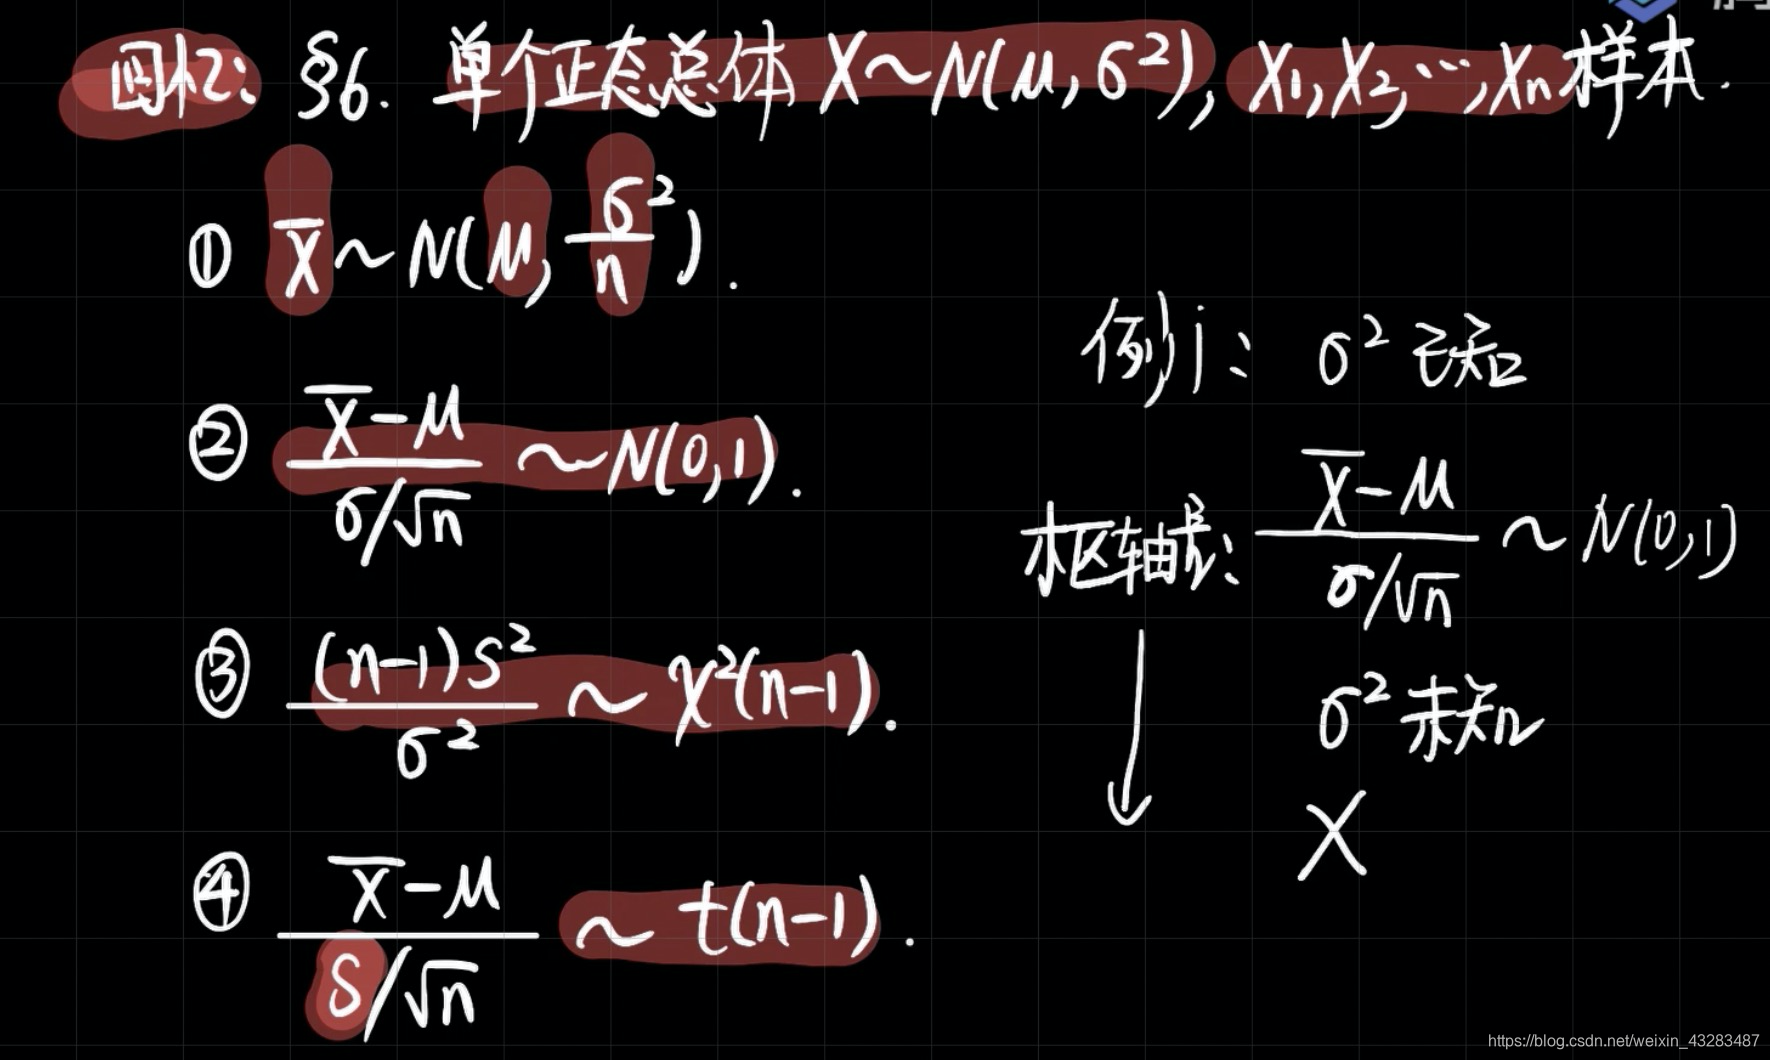 回忆: §6. 单个正态总体 X~N(μ, σ²), X1, X2, ⋯, Xn 样本.
① X̄ ~ N(μ, σ²/n).
② (X̄-μ)/(σ/√n) ~ N(0,1).
③ (n-1)S²/σ² ~ χ²(n-1).
④ (X̄-μ)/(S/√n) ~ t(n-1).
例j: σ² 已知
枢轴量: (X̄-μ)/(σ/√n) ~ N(0,1)
↓
σ² 未知
X
https://blog.csdn.net/weixin_43283487